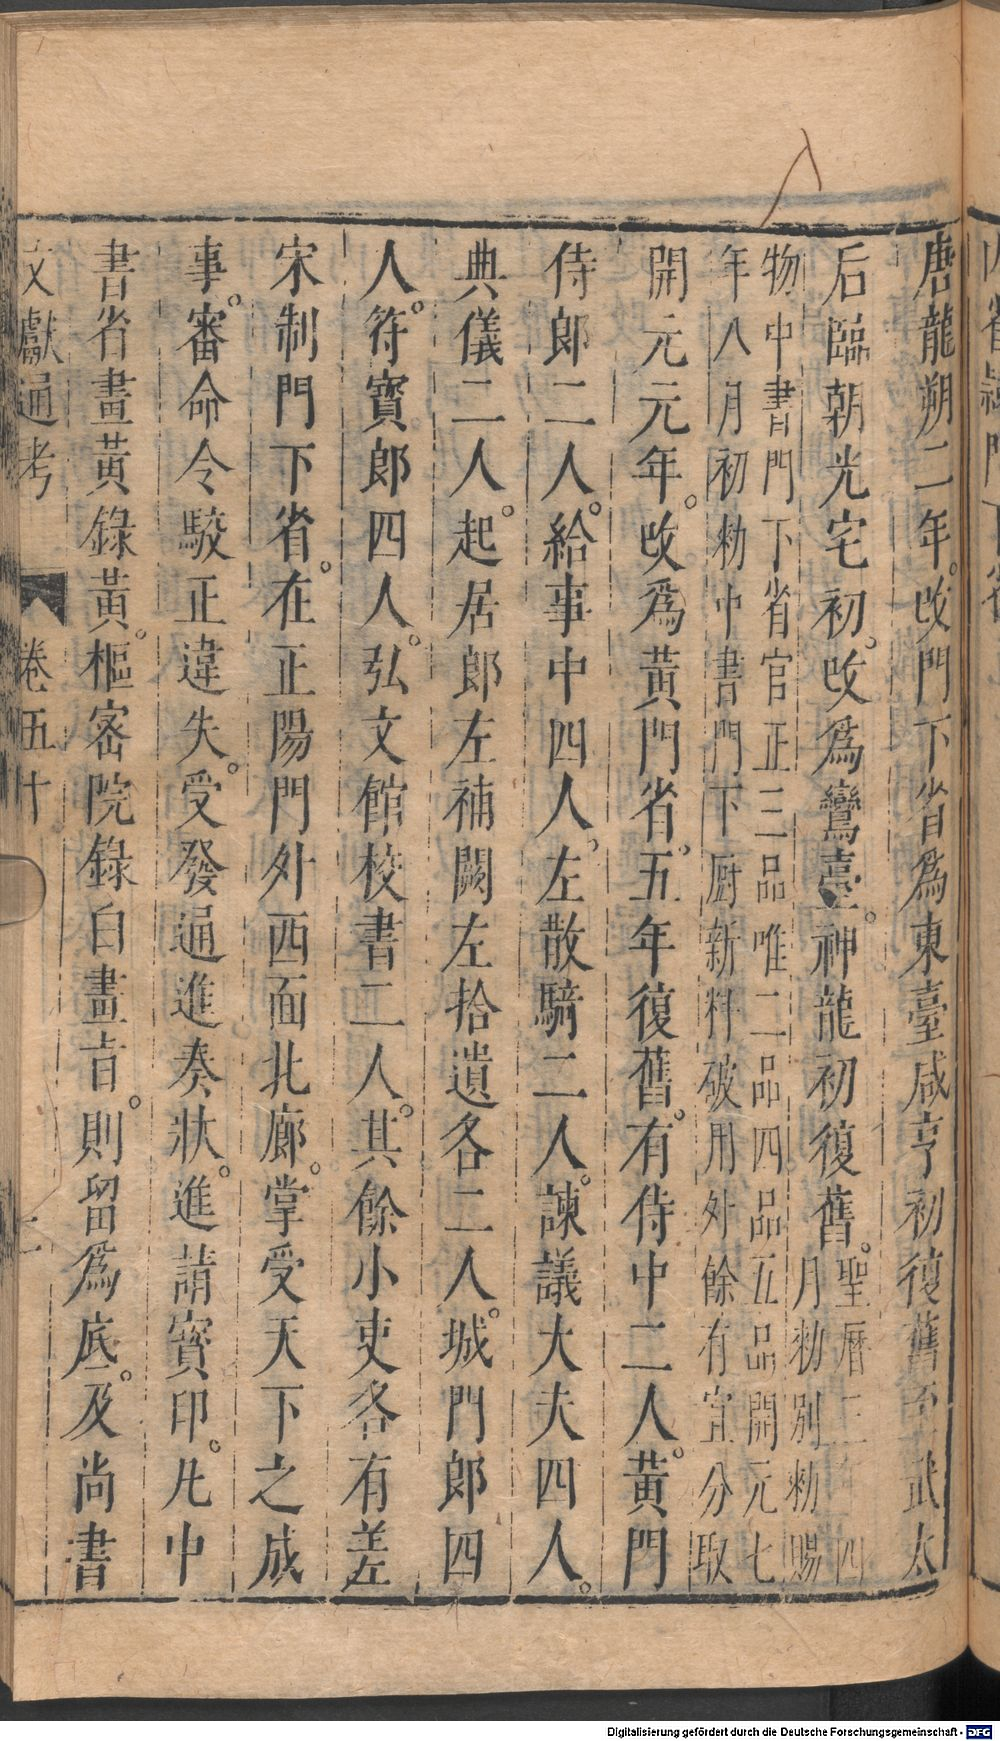 唐龍朔二年。改門下省爲東臺咸亨初復舊至武太
后臨朝光宅初。改爲鸞臺。神龍初復舊。聖曆三年四
月勑別勑賜
物中書門下省官正三品唯二品四品五品開元七
年八月初勑中書門下厨新料破用外餘有宜分取
開元元年。改爲黃門省。五年復舊。有侍中二人。黃門
侍郎二人。給事中四人。左散騎二人。諫議大夫四人。
典儀二人。起居郎左補闕左拾遺各二人。城門郎四
人。符寶郎四人。弘文館校書二人。其餘小吏各有差
宋制門下省。在正陽門外西面北廊。掌受天下之成
事。審命令駮正違失。受發通進奏狀。進請寶印。凡中
書省畫黃錄黃。樞密院錄白畫旨。則留爲底。及尚書
文獻通考 卷五十 二
Digitalisierung gefördert durch die Deutsche Forschungsgemeinschaft - DFG